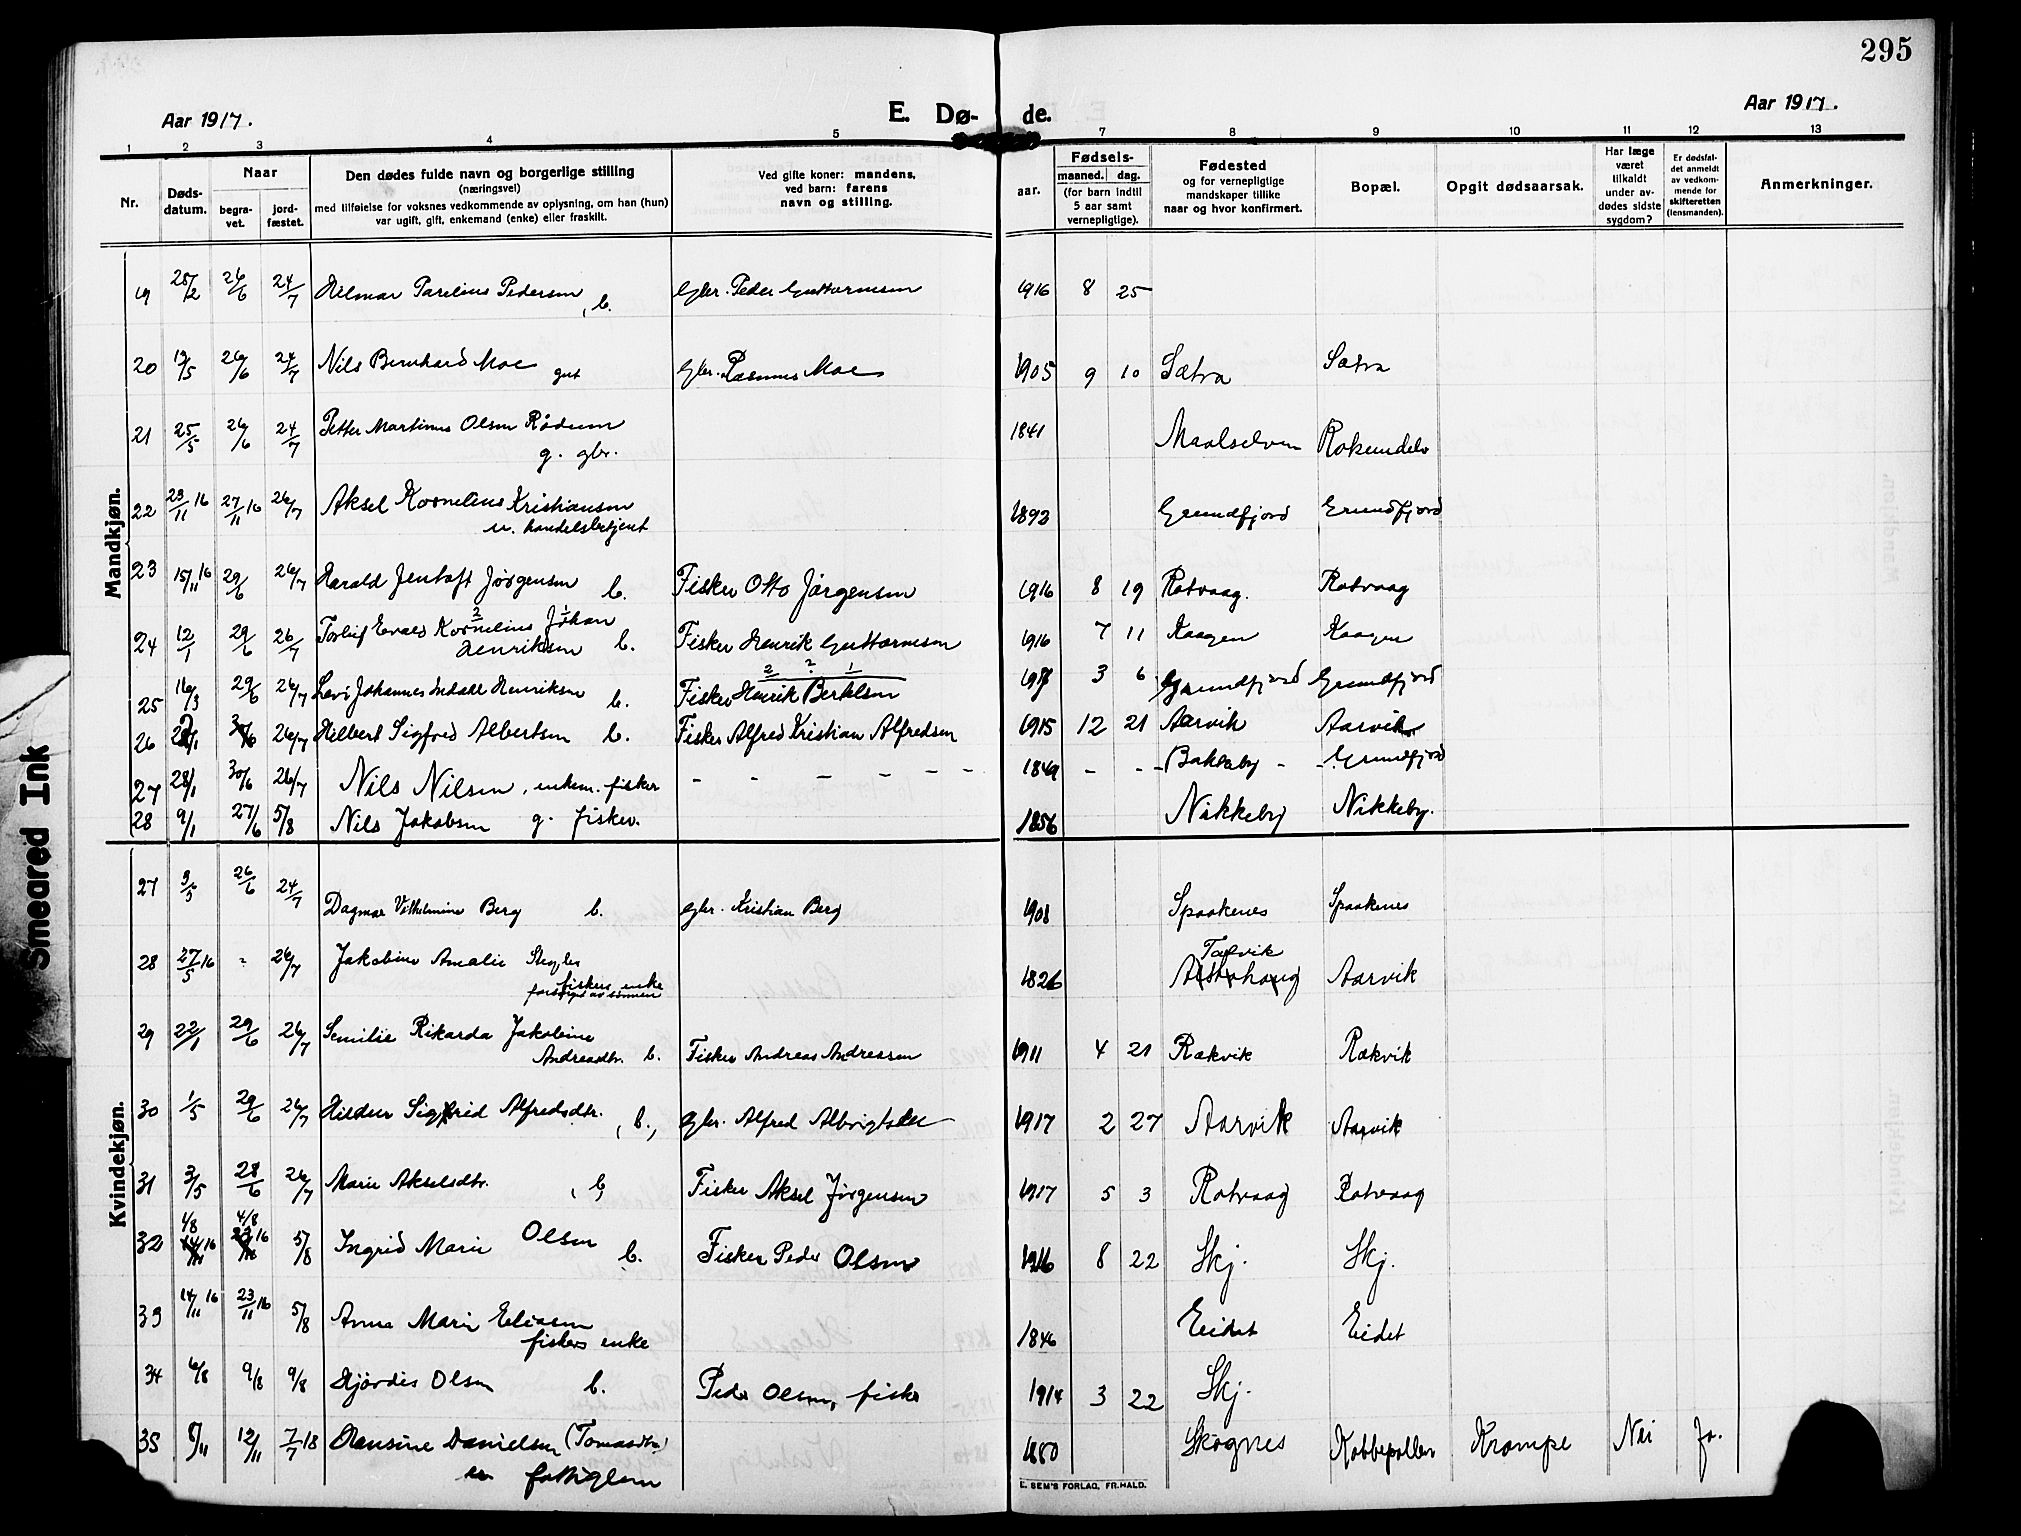 295
Aar 1917.
E. Dø- de.
Aar 1917.
1 2 3 4 5 7 8 9 10 11 12 13
Nr.
Døds-
datum.
Naar
begra-
vet.
jord-
fæstet.
Den dødes fulde navn og borgerlige stilling
(næringsvei)
med tilføielse for voksnes vedkommende av oplysning, om han (hun)
var ugift, gift, enkemand (enke) eller fraskilt.
Ved gifte koner: mandens,
ved barn: farens
navn og stilling.
aar.
Fødsels-
maaned. dag.
(for barn indtil
5 aar samt
vernepligtige).
Fødested
og for vernepligtige
mandskaper tillike
naar og hvor konfirmert.
Bopæl.
Opgit dødsaarsak.
Har læge
været
tilkaldt
under av-
dødes sidste
sygdom?
Er dødsfal-
det anmeldt
av vedkom-
mende for
skifteretten
(lensmanden).
Anmerkninger.
Mandkjøn.
19 25/2 26/6 24/7 Hilmar Parelius Pedersen, b. Gbr. Peder Guttormsen 1916 8 25
20 19/5 26/6 24/7 Nils Bernhard Moe gut Gbr. Rasmus Moe 1905 9 10 Sætra Sætra
21 25/5 26/6 24/7 Petter Martinus Olsen Rödum
g. gbr. 1841 Maalselven Rakeindelv
22 23/11 16 27/11 16 26/7 Aksel Kornelius Kristiansen
u. handelsbetjent 1893 Grundfjord Grundfjord
23 15/11 16 29/6 26/7 Harald Jentoft Jørgensen b. Fisker Otto Jørgensen 1916 8 19 Rotvaag. Rotvaag
24 12/1 29/6 26/7 Torleif Evald Kornelius Johan
Henriksen b. Fisker Henrik Guttormsen 1916 7 11 Kaagen Kaagen
25 16/3 29/6 26/7 Levi Johannes Indall Henriksen b. Fisker Henrik Bertelsen 1917 3 6 Grundfjord Grundfjord
26 26/7 Hilbert Sigfred Albertsen b. Fisker Alfred Kristian Alfredsen 1915 12 21 Aarvik Aarvik
27 28/1 30/6 26/7 Nils Nilsen, enkem. fisker - - - - - - 1849 - - - Bakkeby - - Grundfjord
28 9/1 27/6 5/8 Nils Jakobsen g. fisker. 1856 Nikkeby Nikkeby.
Kvindekjøn.
27 3/5 26/6 24/7 Dagmar Vilhelmine Berg b. gbr. Kristian Berg 1908 Spaakenes Spaakenes
28 27/5 16 " 26/7 Jakobine Amalie
fiskers enke
forsørget av sønnen 1826 Talvik
Alstahaug Aarvik
29 22/1 29/6 26/7 Semilie Rikarda Jakobine
Andreasdtr. b. Fisker Andreas Andreasen 1911 4 21 Rækvik Rækvik
30 1/5 29/6 26/7 Hildur Sigfrid Alfredsdtr., b., gbr. Alfred Albrigtsen 1917 2 27 Aarvik Aarvik
31 3/5 28/6 26/7 Marie Akselsdtr., b. Fisker Aksel Jørgensen 1917 5 3 Rotvaag Rotvaag
32 4/8 4/8 5/8 Ingrid Marie Olsen b. Fisker Peder Olsen 1916 8 22 Skj. Skj.
33 14/11 16 23/11 16 5/8 Anna Marie Eliasen
fiskers enke 1846 Eidet Eidet
34 6/8 9/8 9/8 Hjørdis Olsen b. Peder Olsen, fisker 1914 3 22 Skj.
35 8/11 12/11 7/7 18 Hansine Danielsen (Tomasdtr)
fattiglem 1850 Skognes Kobbepollen Krampe Nei Ja.
E. SEM'S FORLAG, FR.HALD.
Smeared Ink